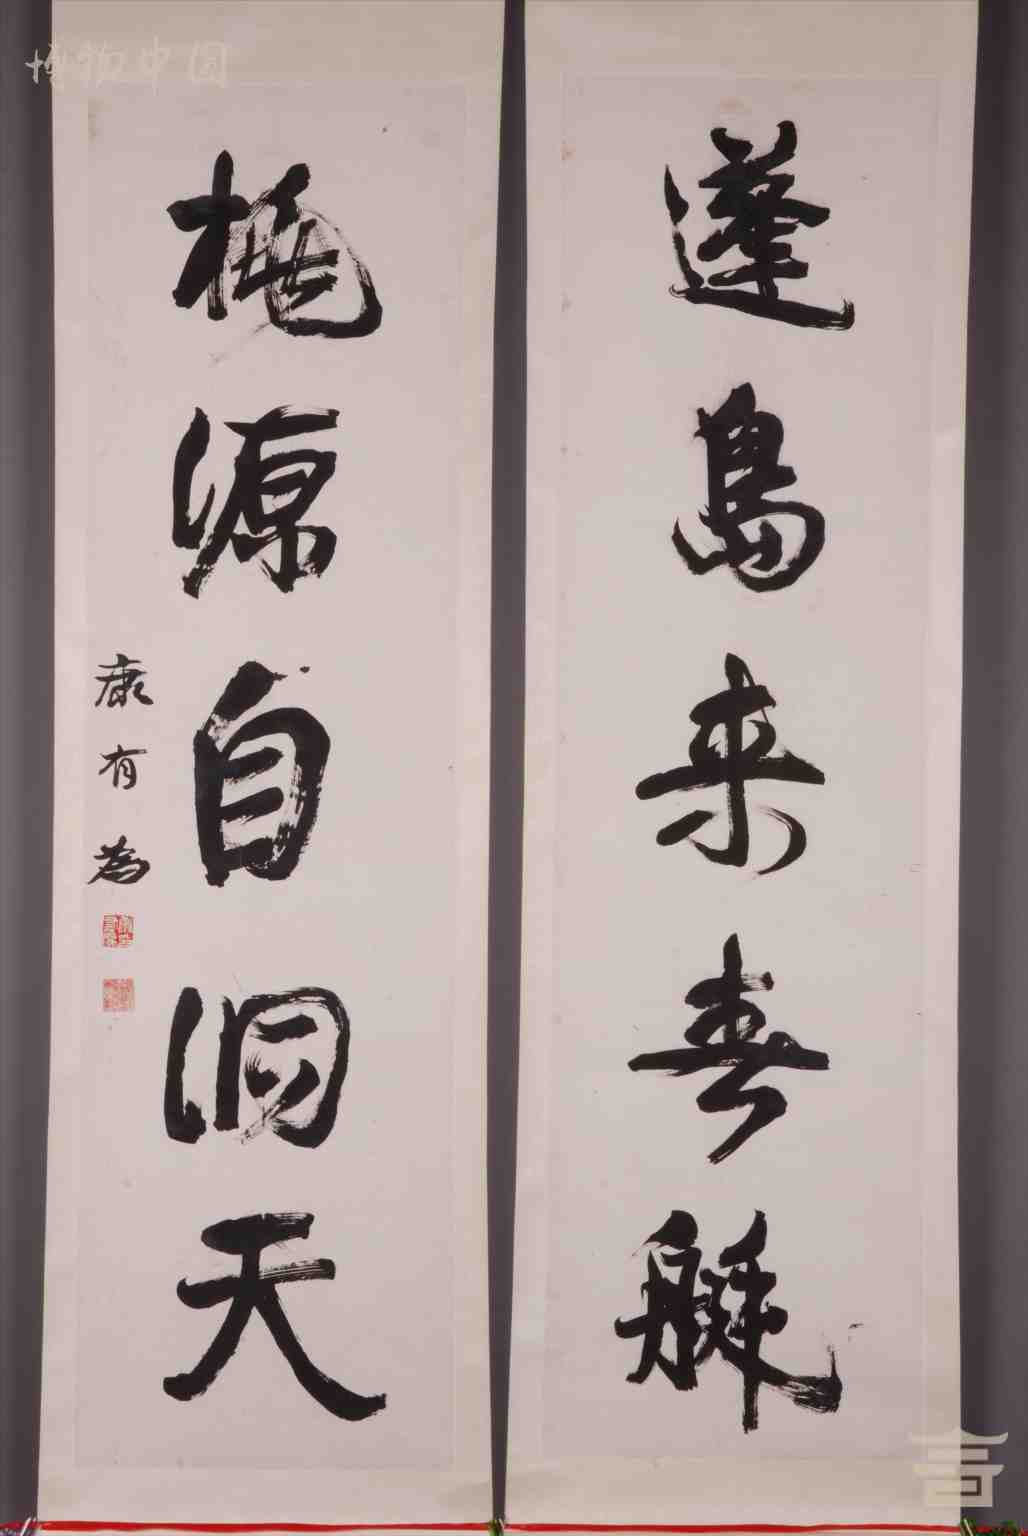 博物中国
蓬島来春艇
桃源自洞天
康有為